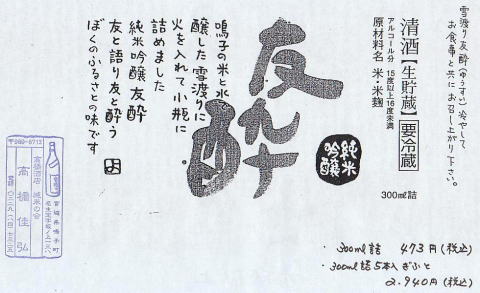 雪渡り友酔(ゆうすい)冷やして
お食事と共にお召し上がり下さい。
清酒【生貯蔵】要冷蔵
アルコール分 15度以上16度未満
原材料名 米・米麹
300㎖詰
純米吟醸
友酔
鳴子の米と水
醸した雪渡りに
火を入れて小瓶に
詰めました
純米吟醸友酔
友と語り友と酔う
ぼくのふるさとの味です
高橋酒店 純米の会
高橋佳弘
・300㎖詰 473円(税込)
・300㎖詰5本入ぎふと
2.940円(税込)